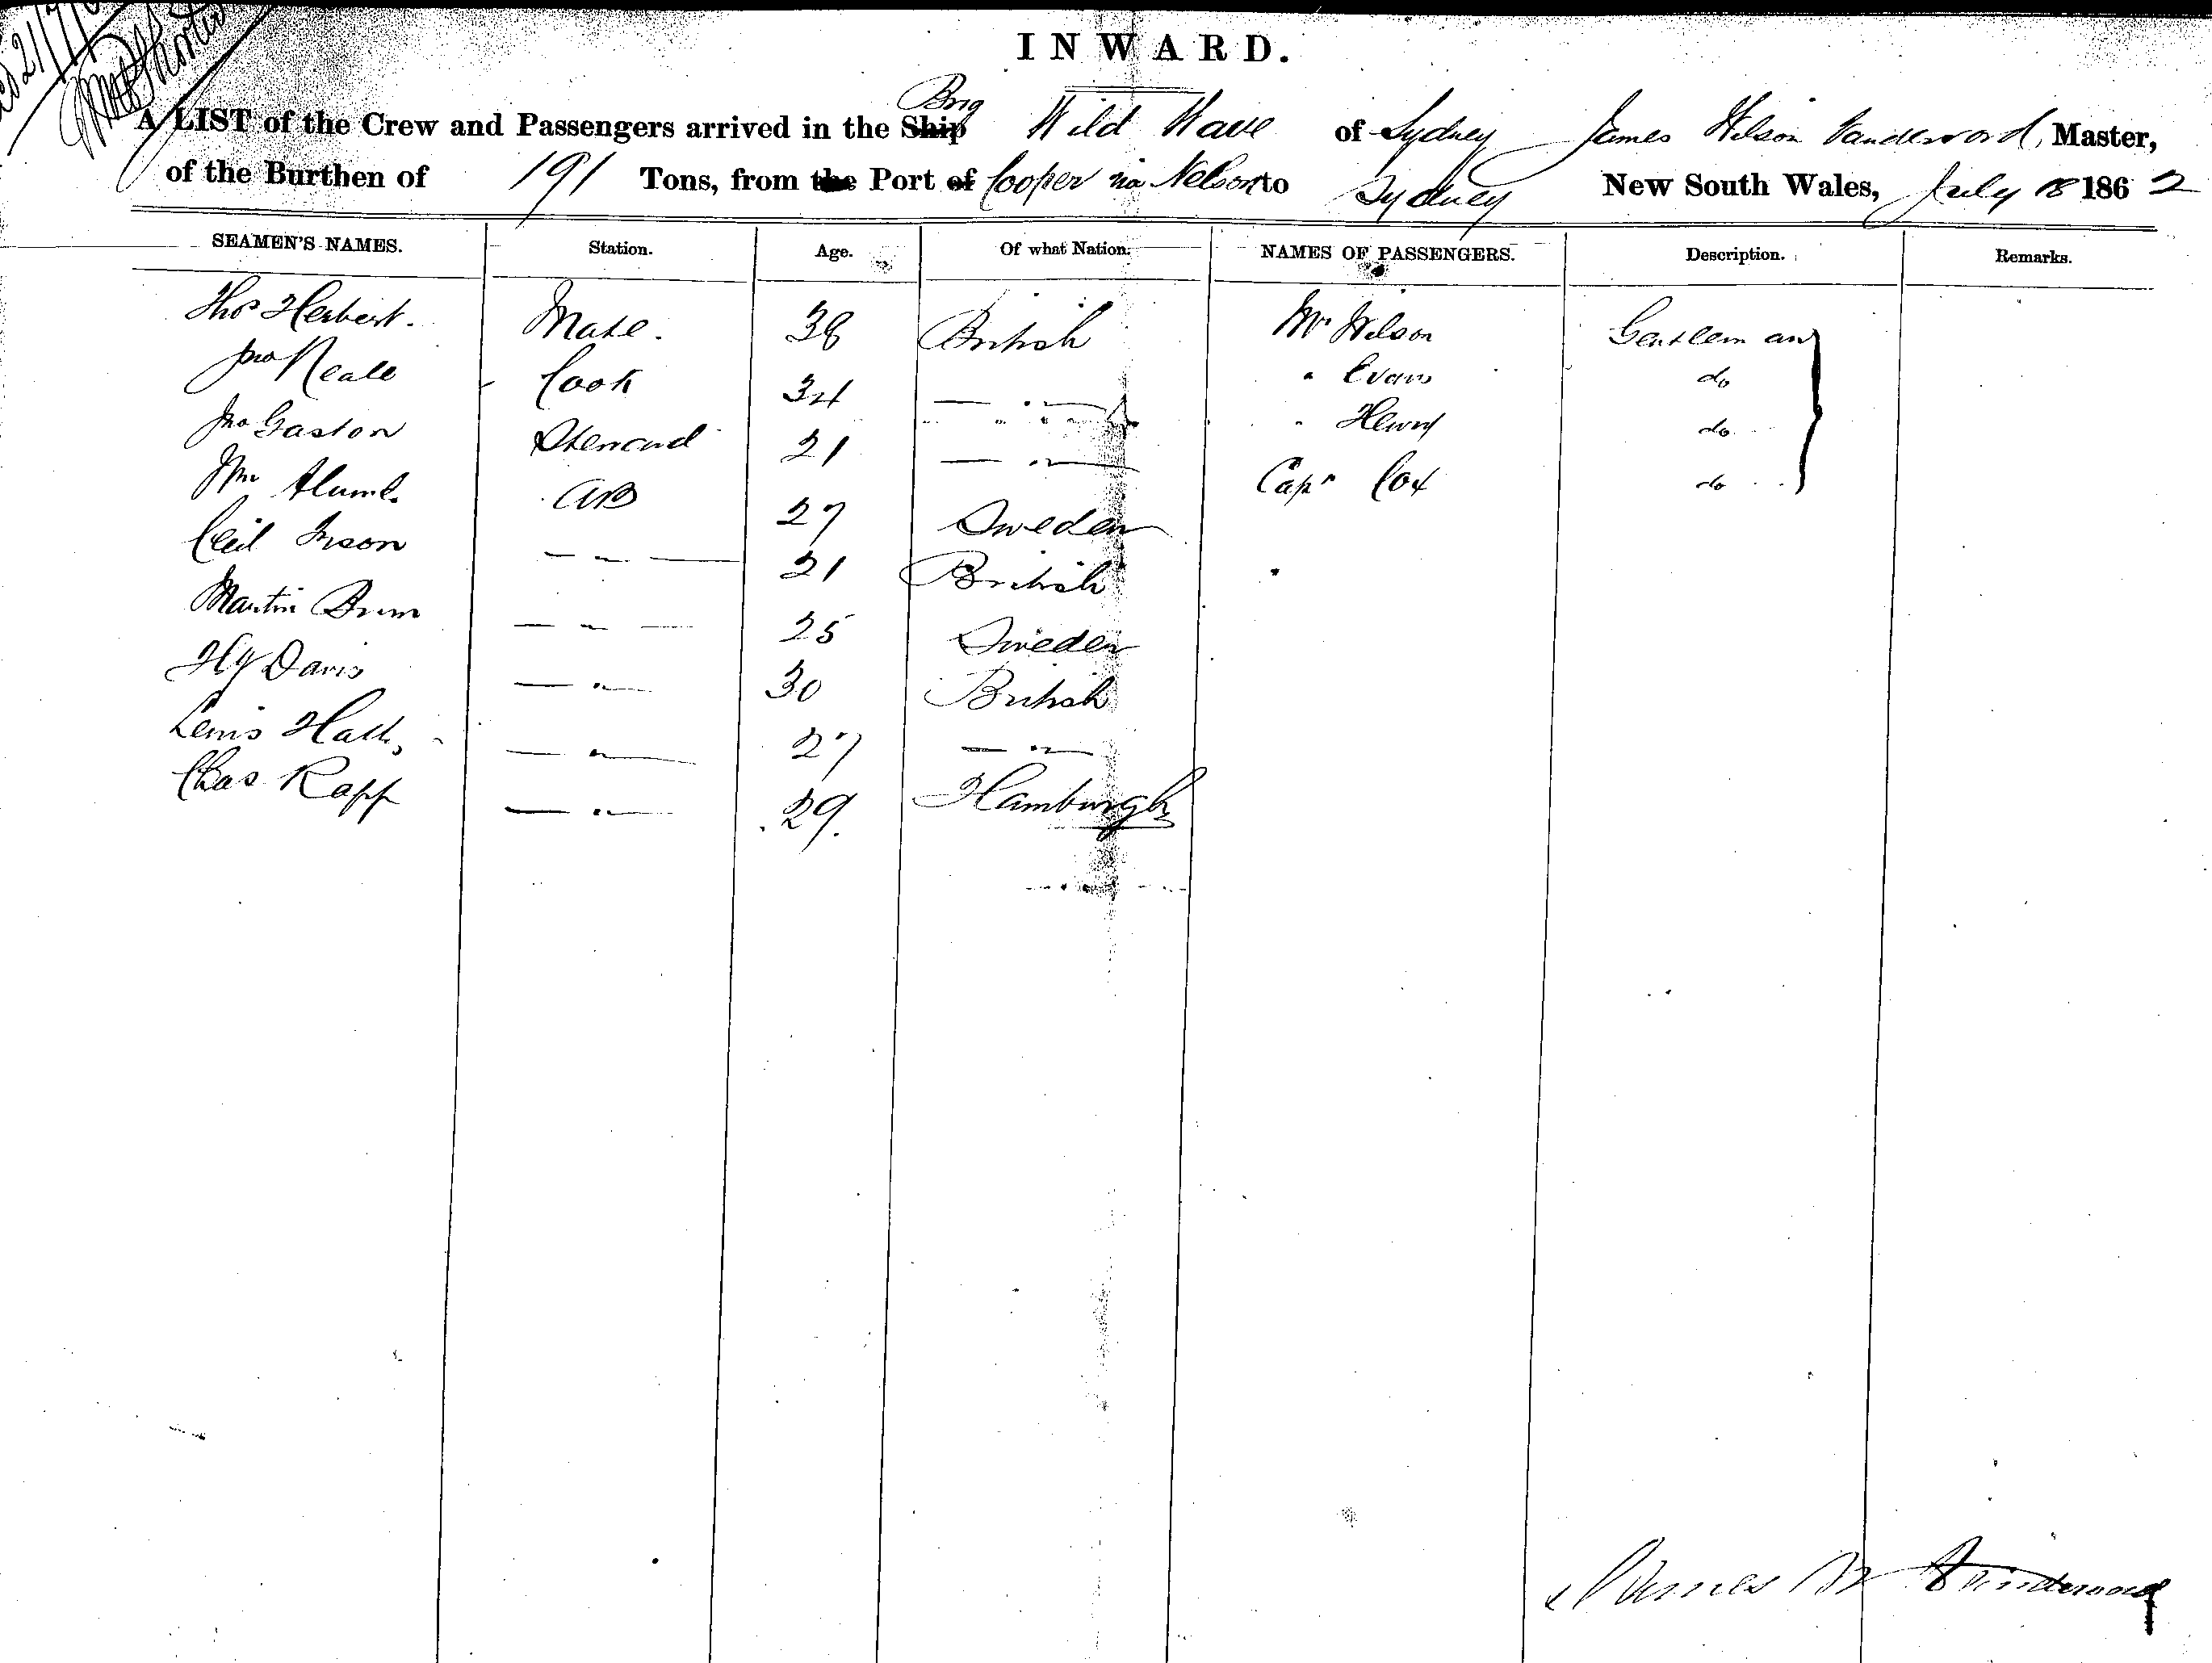 INWARD.
Brig
A LIST of the Crew and Passengers arrived in the Ship Wild Wave of Sydney James Wilson Vanderword, Master,
of the Burthen of 191 Tons, from the Port of Cooper via Nelson to Sydney New South Wales, July 18 1862
SEAMEN'S NAMES. Station. Age. Of what Nation. NAMES OF PASSENGERS. Description. Remarks.
Thos Herbert. Mate. 38 British Mr Wilson Gentleman
Jno Neale Cook 34 — " — " Evans do
Jno Gaston Steward 21 — " — " Henry do
Wm AB 27 Sweden Capn Cox do
Cecil — " — 21 British
Martin — " — 25 Sweden
Hy Davis — " — 30 British
Lewis Hall — " — 27 — " —
Chas Rapp — " — 29. Hamburgh
James W Vanderword